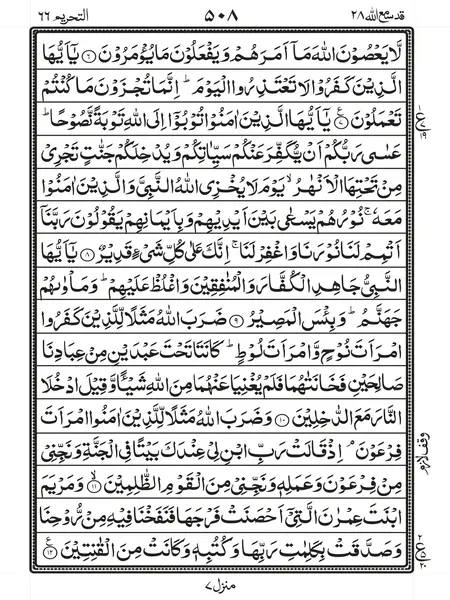 قد سمع الله ٢٨ ٥٠٨ التحريم ٦٦
لَّا يَعْصُوْنَ اللّٰهَ مَاۤ اَمَرَهُمْ وَيَفْعَلُوْنَ مَا يُؤْمَرُوْنَ ﴿٦﴾ يٰۤاَيُّهَا
الَّذِيْنَ كَفَرُوْا لَا تَعْتَذِرُوا الْيَوْمَ ؕ اِنَّمَا تُجْزَوْنَ مَا كُنْتُمْ
تَعْمَلُوْنَ ﴿٧﴾ يٰۤاَيُّهَا الَّذِيْنَ اٰمَنُوْا تُوْبُوْۤا اِلَى اللّٰهِ تَوْبَةً نَّصُوْحًا ؕ
عَسٰى رَبُّكُمْ اَنْ يُّكَفِّرَ عَنْكُمْ سَيِّاٰتِكُمْ وَيُدْخِلَكُمْ جَنّٰتٍ تَجْرِيْ
مِنْ تَحْتِهَا الْاَنْهٰرُ ۙ يَوْمَ لَا يُخْزِى اللّٰهُ النَّبِيَّ وَالَّذِيْنَ اٰمَنُوْا
مَعَهٗ ۚ نُوْرُهُمْ يَسْعٰى بَيْنَ اَيْدِيْهِمْ وَبِاَيْمَانِهِمْ يَقُوْلُوْنَ رَبَّنَاۤ
اَتْمِمْ لَنَا نُوْرَنَا وَاغْفِرْ لَنَا ۚ اِنَّكَ عَلٰى كُلِّ شَيْءٍ قَدِيْرٌ ﴿٨﴾ يٰۤاَيُّهَا
النَّبِيُّ جَاهِدِ الْكُفَّارَ وَالْمُنٰفِقِيْنَ وَاغْلُظْ عَلَيْهِمْ ؕ وَمَاْوٰىهُمْ
جَهَنَّمُ ؕ وَبِئْسَ الْمَصِيْرُ ﴿٩﴾ ضَرَبَ اللّٰهُ مَثَلًا لِّلَّذِيْنَ كَفَرُوا
امْرَاَتَ نُوْحٍ وَّامْرَاَتَ لُوْطٍ ؕ كَانَتَا تَحْتَ عَبْدَيْنِ مِنْ عِبَادِنَا
صَالِحَيْنِ فَخَانَتٰهُمَا فَلَمْ يُغْنِيَا عَنْهُمَا مِنَ اللّٰهِ شَيْـًٔا وَّقِيْلَ ادْخُلَا
النَّارَ مَعَ الدّٰخِلِيْنَ ﴿١٠﴾ وَضَرَبَ اللّٰهُ مَثَلًا لِّلَّذِيْنَ اٰمَنُوا امْرَاَتَ
فِرْعَوْنَ ۘ اِذْ قَالَتْ رَبِّ ابْنِ لِيْ عِنْدَكَ بَيْتًا فِى الْجَنَّةِ وَنَجِّنِيْ
مِنْ فِرْعَوْنَ وَعَمَلِهٖ وَنَجِّنِيْ مِنَ الْقَوْمِ الظّٰلِمِيْنَ ﴿١١﴾ وَمَرْيَمَ
ابْنَتَ عِمْرٰنَ الَّتِيْۤ اَحْصَنَتْ فَرْجَهَا فَنَفَخْنَا فِيْهِ مِنْ رُّوْحِنَا
وَصَدَّقَتْ بِكَلِمٰتِ رَبِّهَا وَكُتُبِهٖ وَكَانَتْ مِنَ الْقٰنِتِيْنَ ﴿١٢﴾
وقف لازم
منزل ٧